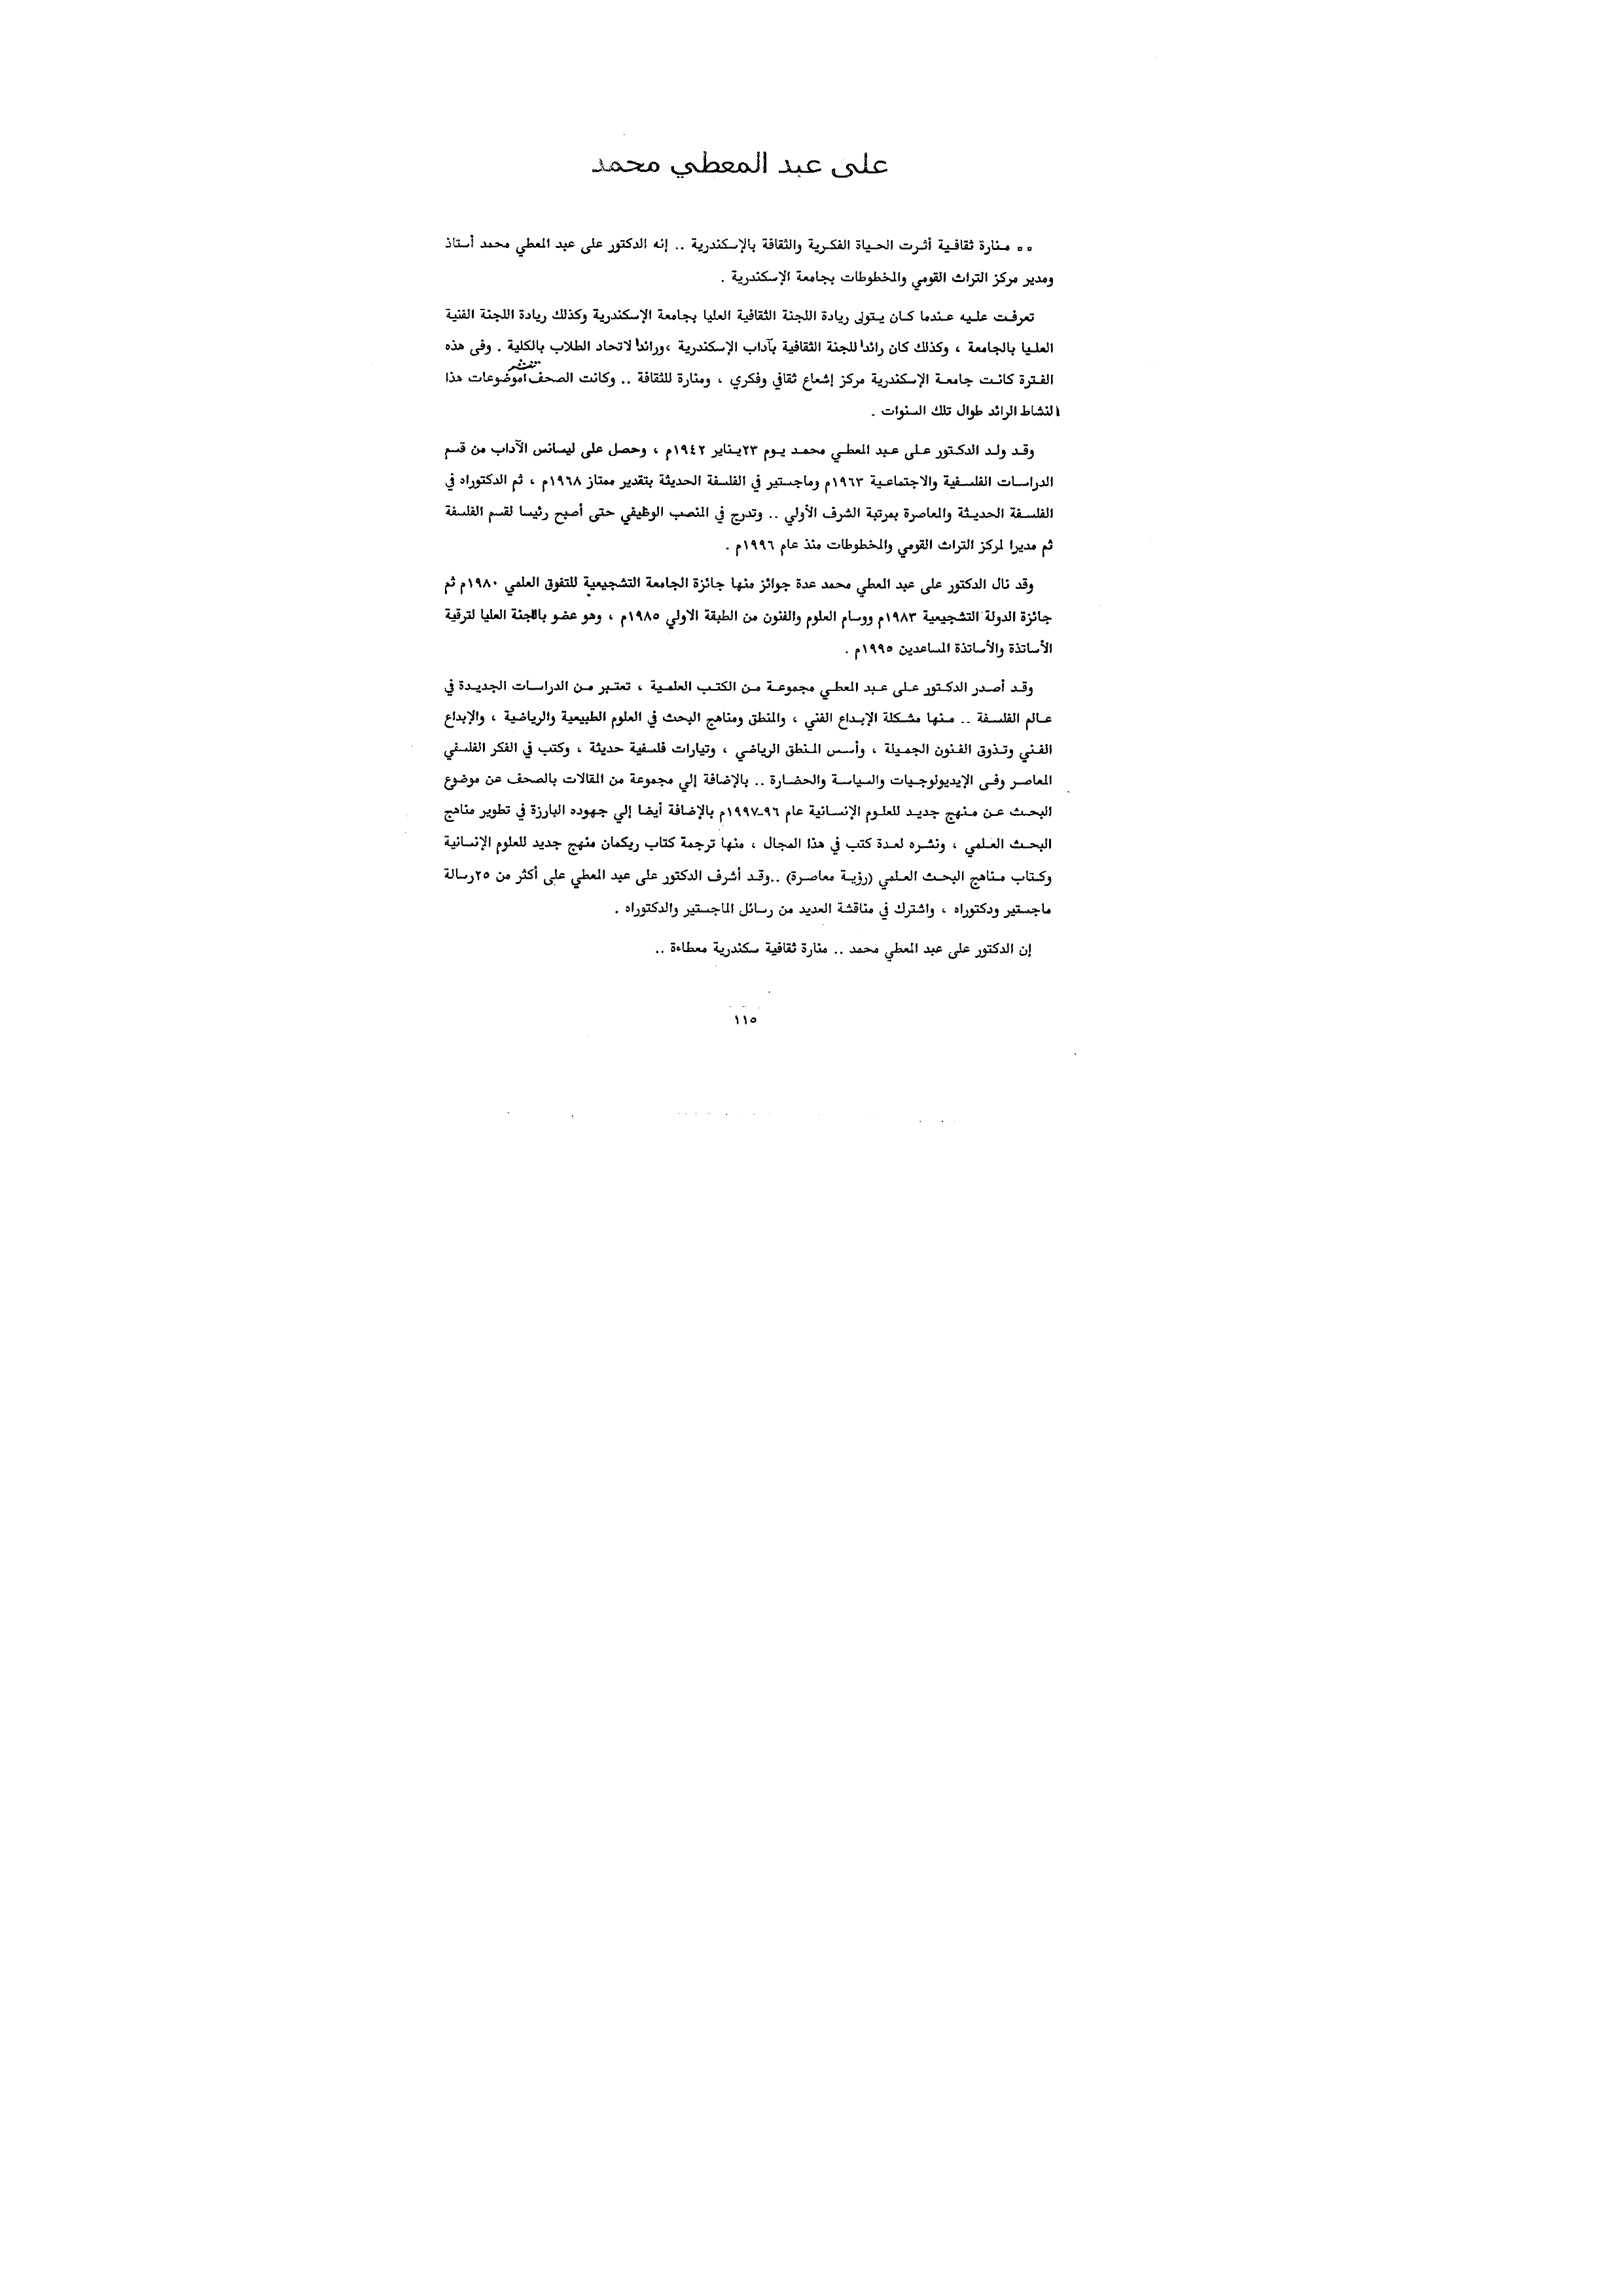 على عبد المعطي محمد
¤ ¤ منارة ثقافية أثرت الحياة الفكرية والثقافة بالإسكندرية .. إنه الدكتور على عبد المعطي محمد أستاذ
ومدير مركز التراث القومي والمخطوطات بجامعة الإسكندرية .
تعرفت عليه عندما كان يتولى ريادة اللجنة الثقافية العليا بجامعة الإسكندرية وكذلك ريادة اللجنة الفنية
العليا بالجامعة ، وكذلك كان رائدا للجنة الثقافية بآداب الإسكندرية ،ورائدا لاتحاد الطلاب بالكلية . وفى هذه
الفترة كانت جامعة الإسكندرية مركز إشعاع ثقافي وفكري ، ومنارة للثقافة .. وكانت الصحف تنشر موضوعات هذا
النشاط الرائد طوال تلك السنوات .
وقد ولد الدكتور على عبد المعطي محمد يوم ٢٣يناير ١٩٤٢م ، وحصل على ليسانس الآداب من قسم
الدراسات الفلسفية والاجتماعية ١٩٦٣م وماجستير في الفلسفة الحديثة بتقدير ممتاز ١٩٦٨م ، ثم الدكتوراه في
الفلسفة الحديثة والمعاصرة بمرتبة الشرف الأولي .. وتدرج في المنصب الوظيفي حتى أصبح رئيسا لقسم الفلسفة
ثم مديرا لمركز التراث القومي والمخطوطات منذ عام ١٩٩٦م .
وقد نال الدكتور على عبد المعطي محمد عدة جوائز منها جائزة الجامعة التشجيعية للتفوق العلمي ١٩٨٠م ثم
جائزة الدولة التشجيعية ١٩٨٣م ووسام العلوم والفنون من الطبقة الاولي ١٩٨٥م ، وهو عضو باللجنة العليا لترقية
الأساتذة والأساتذة المساعدين ١٩٩٥م .
وقد أصدر الدكتور على عبد المعطي مجموعة من الكتب العلمية ، تعتبر من الدراسات الجديدة في
عالم الفلسفة .. منها مشكلة الإبداع الفني ، والمنطق ومناهج البحث في العلوم الطبيعية والرياضية ، والإبداع
الفني وتذوق الفنون الجميلة ، وأسس المنطق الرياضي ، وتيارات فلسفية حديثة ، وكتب في الفكر الفلسفي
المعاصر وفى الإيديولوجيات والسياسة والحضارة .. بالإضافة إلي مجموعة من المقالات بالصحف عن موضوع
البحث عن منهج جديد للعلوم الإنسانية عام ٩٦-١٩٩٧م بالإضافة أيضا إلي جهوده البارزة في تطوير مناهج
البحث العلمي ، ونشره لعدة كتب في هذا المجال ، منها ترجمة كتاب ريكمان منهج جديد للعلوم الإنسانية
وكتاب مناهج البحث العلمي (رؤية معاصرة) ..وقد أشرف الدكتور على عبد المعطي على أكثر من ٢٥رسالة
ماجستير ودكتوراه ، واشترك في مناقشة العديد من رسائل الماجستير والدكتوراه .
إن الدكتور على عبد المعطي محمد .. منارة ثقافية سكندرية معطاءة ..
١١٥